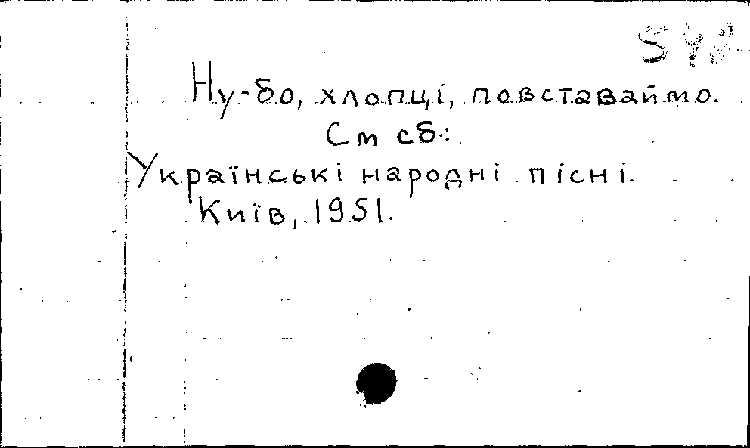 Ну-бо, хлопці, повставаймо.
См сб:
Українські народні пісні.
Київ, 1951.